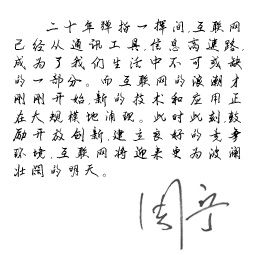 二十年弹指一挥间,互联网
已经从通讯工具,信息高速路,
成为了我们生活中不可或缺
的一部分。而互联网的浪潮才
刚刚开始,新的技术和应用正
在大规模地涌现。此时此刻,鼓
励开放创新,建立良好的竞争
环境,互联网将迎来更为波澜
壮阔的明天。